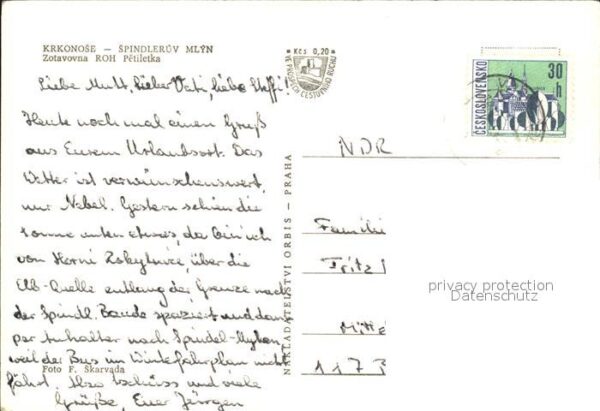 KRKONOŠE — ŠPINDLERŮV MLÝN
Zotavovna ROH Pětiletka
Kčs 0,20
VE PROSPĚCH CESTOVNÍHO RUCHU
ČESKOSLOVENSKO
30 h
Liebe Mutti, lieber Vati, liebe Steffi!
Heute noch mal einen Gruß
aus Eurem Urlandsort. Das
Wetter ist verwünschenswert,
nur Nebel. Gestern schien die
Sonne unten etwas, da bin ich
von Horni Rokytnice, über die
Elb-Quelle entlang der Grenze nach
der Spindl. Baude spaziert und dann
per Anhalter nach Spindel-Mylen
weil der Bus im Winterfahrplan nicht
fährt. Also tschüss und viele
Grüße, Euer Jürgen
Foto F. Škarvada
NAKLADATELSTVÍ ORBIS — PRAHA
NDR
Familie
Fritz
117
privacy protection
Datenschutz